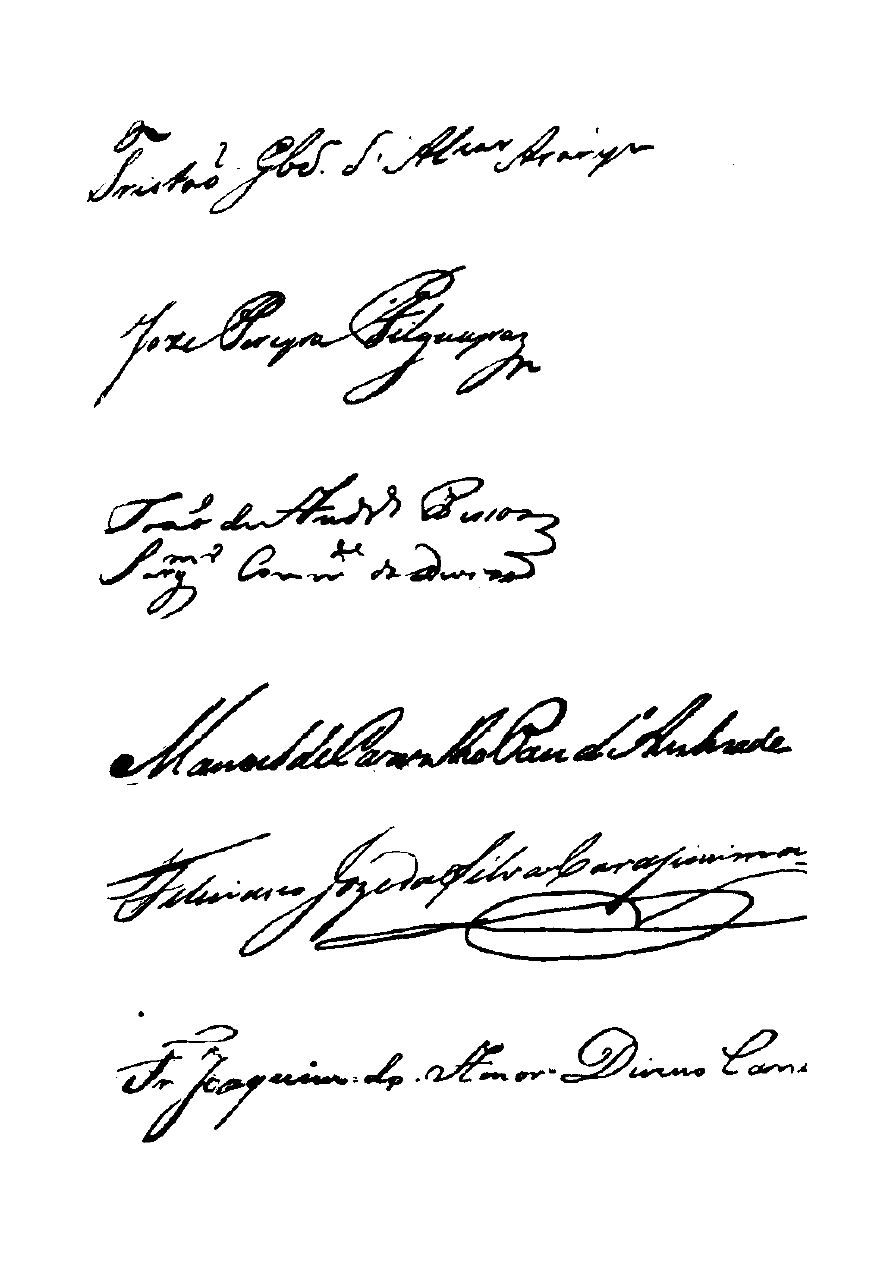 Tristaõ Glz. d'Alear Araripe
Joze Pereyra Filgueyraz
João de Andr.e Pessoa
Sarg.mor Comm.de da Divizaõ
Manoel de Carvalho Paes d'Andrade
Feliciano Joze da Silva Carapinima
Fr Joaquim do Amor Divino Cane